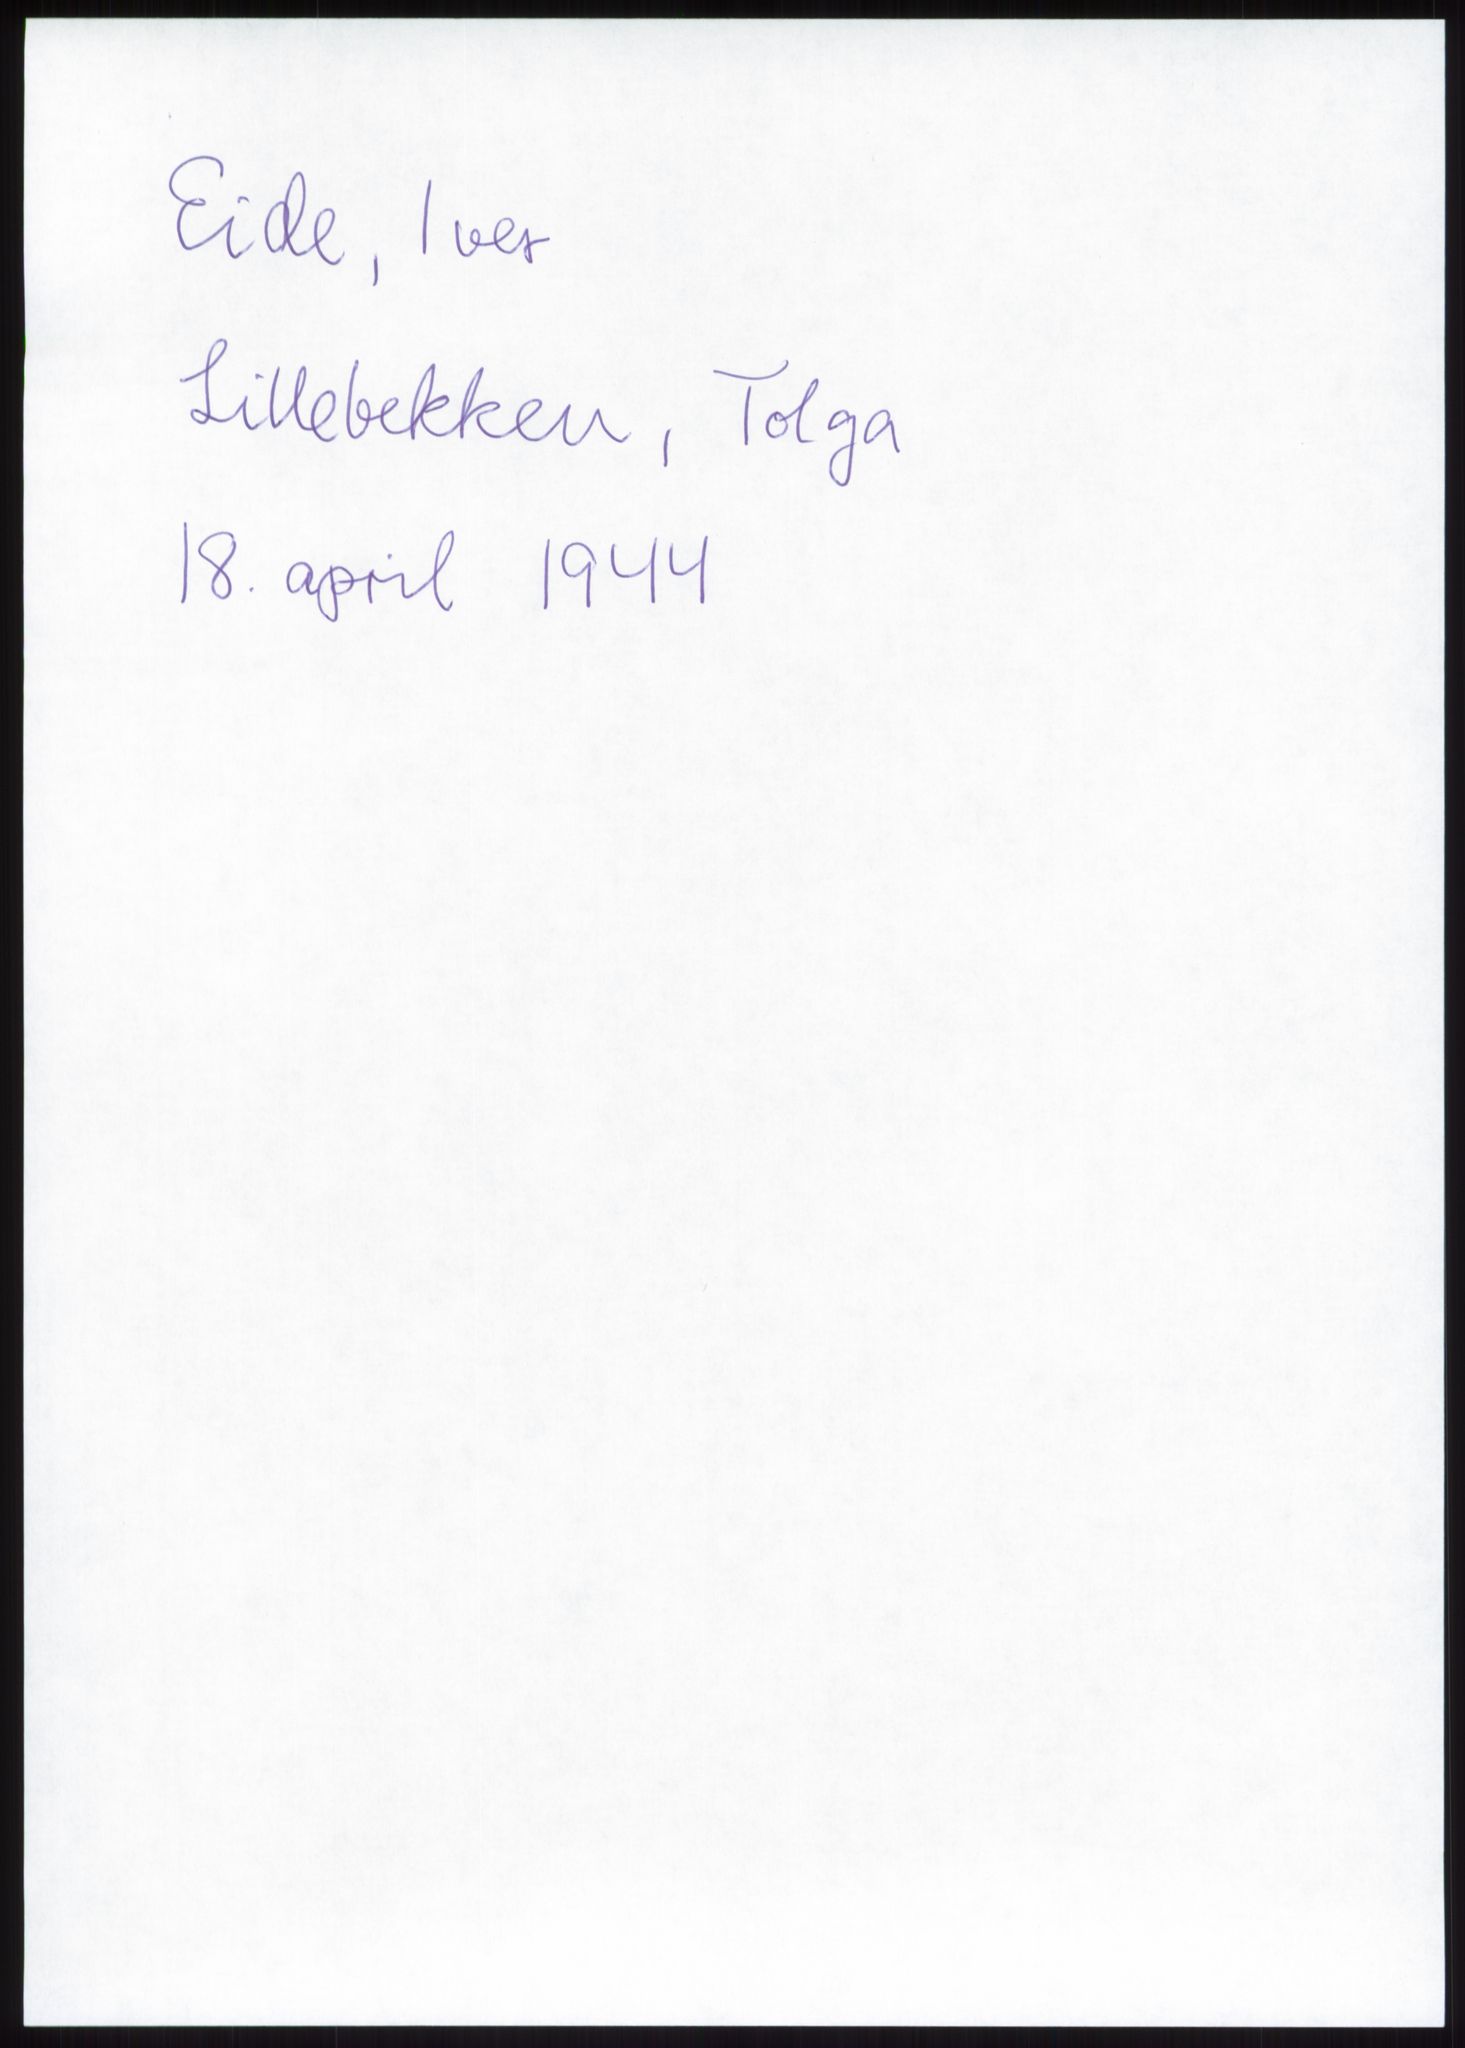 Eide, Iver
Lillebekken, Tolga
18. april 1944